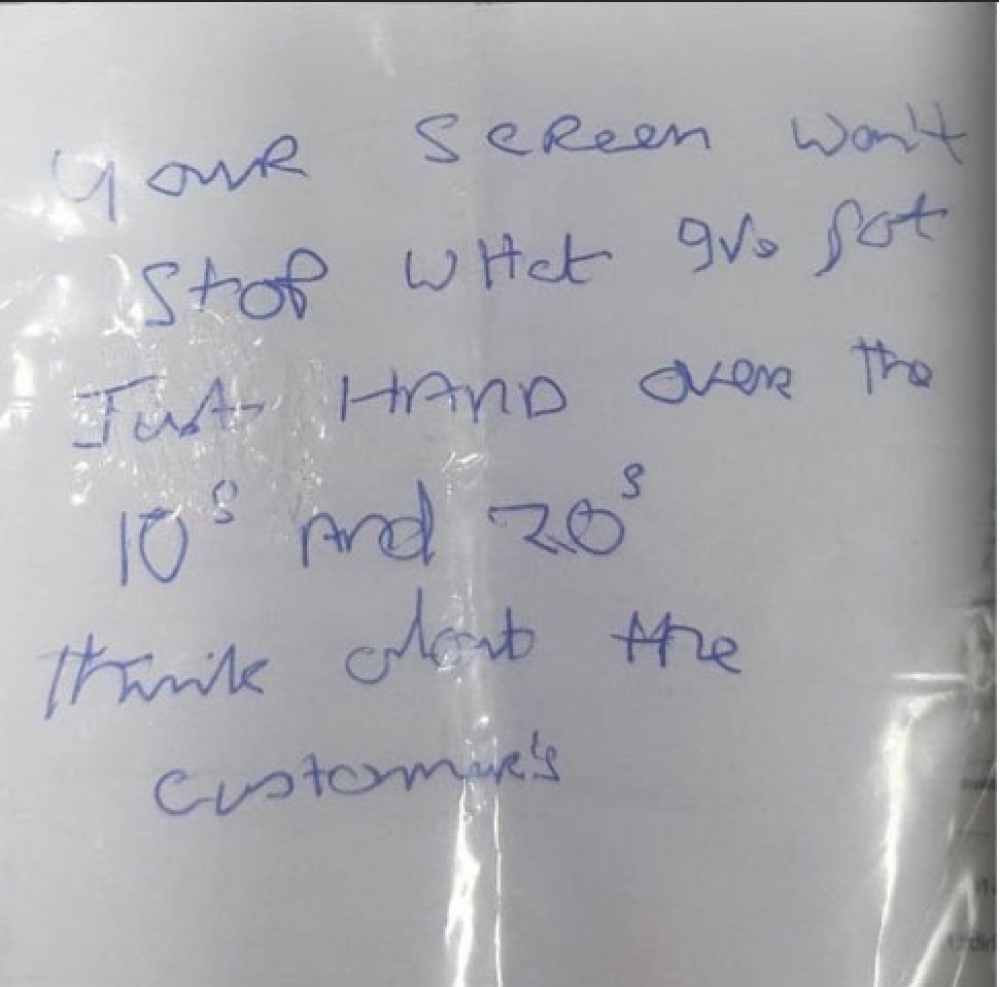 Your Screen won't
Stop WHat I've Got
Just HAND over the
10s And 20s
think about the
customer's